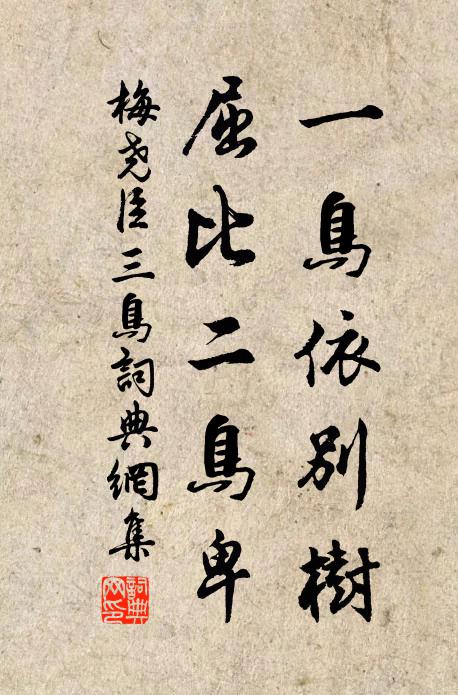 一鳥依別樹
屈比二鳥卑
梅堯臣三鳥詞典網集
詞典网印